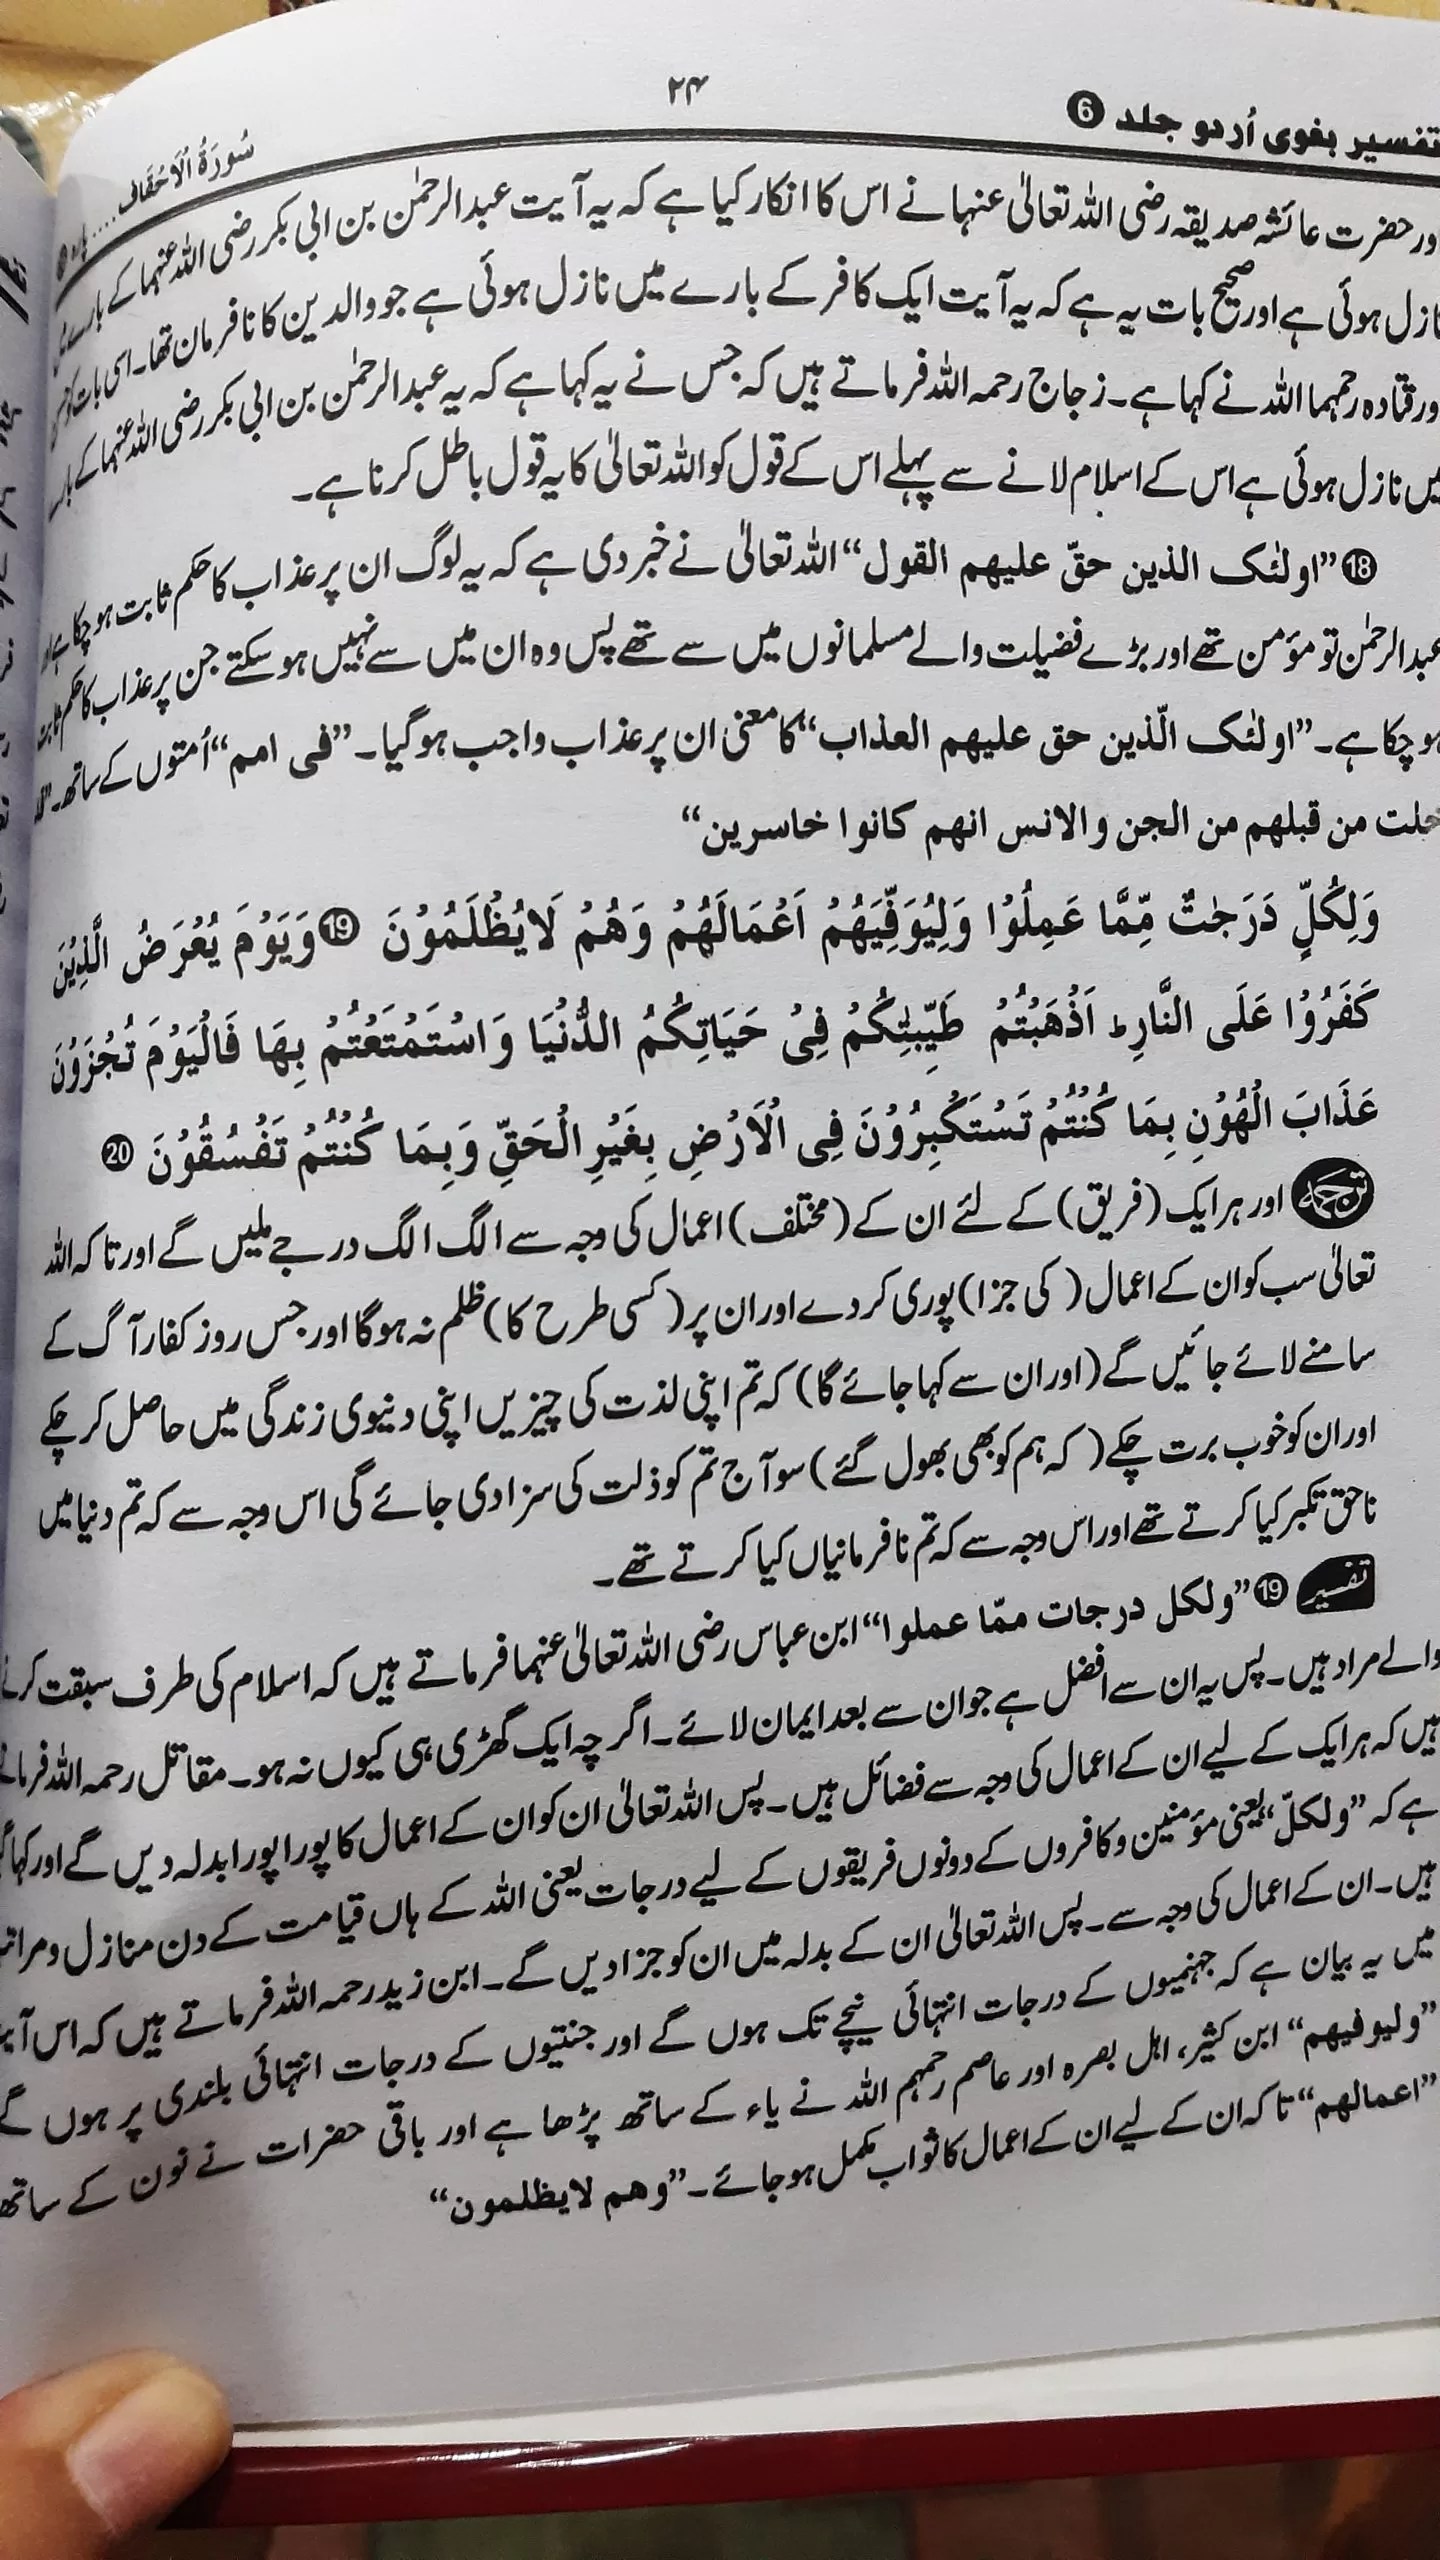 تفسیر بغوی اُردو جلد 6
۲۴
سُورَةُ الْاَحْقَاف.....
اور حضرت عائشہ صدیقہ رضی اللہ تعالیٰ عنہا نے اس کا انکار کیا ہے کہ یہ آیت عبدالرحمٰن بن ابی بکر رضی اللہ عنہما کے بارے میں
نازل ہوئی ہے اور صحیح بات یہ ہے کہ یہ آیت ایک کافر کے بارے میں نازل ہوئی ہے جو والدین کا نافرمان تھا۔ اسی بات کو
اور قتادہ رحمہما اللہ نے کہا ہے۔ زجاج رحمہ اللہ فرماتے ہیں کہ جس نے یہ کہا ہے کہ یہ عبدالرحمٰن بن ابی بکر رضی اللہ عنہما کے
میں نازل ہوئی ہے اس کے اسلام لانے سے پہلے اس کے قول کو اللہ تعالیٰ کا یہ قول باطل کرتا ہے۔
18 ”اولٰئک الذین حقّ علیھم القول“ اللہ تعالیٰ نے خبر دی ہے کہ یہ لوگ ان پر عذاب کا حکم ثابت ہو چکا ہے اور
عبدالرحمٰن تو مؤمن تھے اور بڑے فضیلت والے مسلمانوں میں سے تھے پس وہ ان میں سے نہیں ہو سکتے جن پر عذاب کا حکم ثابت
ہو چکا ہے۔ ”اولٰئک الّذین حق علیھم العذاب“ کا معنی ان پر عذاب واجب ہو گیا۔ ”فی امم“ اُمتوں کے ساتھ۔
خلت من قبلھم من الجن والانس انھم کانوا خاسرین“
وَلِكُلٍّ دَرَجٰتٌ مِّمَّا عَمِلُوْا وَلِيُوَفِّيَهُمْ اَعْمَالَهُمْ وَهُمْ لَايُظْلَمُوْنَ 19 وَيَوْمَ يُعْرَضُ الَّذِيْنَ
كَفَرُوْا عَلَى النَّارِط اَذْهَبْتُمْ طَيِّبٰتِكُمْ فِىْ حَيَاتِكُمُ الدُّنْيَا وَاسْتَمْتَعْتُمْ بِهَا فَالْيَوْمَ تُجْزَوْنَ
عَذَابَ الْهُوْنِ بِمَا كُنْتُمْ تَسْتَكْبِرُوْنَ فِى الْاَرْضِ بِغَيْرِ الْحَقِّ وَبِمَا كُنْتُمْ تَفْسُقُوْنَ 20
ترجمہ اور ہر ایک (فریق) کے لئے ان کے (مختلف) اعمال کی وجہ سے الگ الگ درجے ملیں گے اور تا کہ اللہ
تعالیٰ سب کو ان کے اعمال (کی جزا) پوری کر دے اور ان پر (کسی طرح کا) ظلم نہ ہوگا اور جس روز کفار آگ کے
سامنے لائے جائیں گے (اور ان سے کہا جائے گا) کہ تم اپنی لذت کی چیزیں اپنی دنیوی زندگی میں حاصل کر چکے
اور ان کو خوب برت چکے (کہ ہم کو بھی بھول گئے) سو آج تم کو ذلت کی سزا دی جائے گی اس وجہ سے کہ تم دنیا میں
ناحق تکبر کیا کرتے تھے اور اس وجہ سے کہ تم نافرمانیاں کیا کرتے تھے۔
تفسیر 19 ”ولکل درجات ممّا عملوا“ ابن عباس رضی اللہ تعالیٰ عنہما فرماتے ہیں کہ اسلام کی طرف سبقت کرنے
والے مراد ہیں۔ پس یہ ان سے افضل ہے جو ان سے بعد ایمان لائے۔ اگرچہ ایک گھڑی ہی کیوں نہ ہو۔ مقاتل رحمہ اللہ فرماتے
ہیں کہ ہر ایک کے لیے ان کے اعمال کی وجہ سے فضائل ہیں۔ پس اللہ تعالیٰ ان کو ان کے اعمال کا پورا پورا بدلہ دیں گے اور کہا گیا
ہے کہ ”ولکلّ“ یعنی مؤمنین و کافروں کے دونوں فریقوں کے لیے درجات یعنی اللہ کے ہاں قیامت کے دن منازل و مراتب
ہیں۔ ان کے اعمال کی وجہ سے۔ پس اللہ تعالیٰ ان کے بدلہ میں ان کو جزا دیں گے۔ ابن زید رحمہ اللہ فرماتے ہیں کہ اس آیت
میں یہ بیان ہے کہ جہنمیوں کے درجات انتہائی نیچے تک ہوں گے اور جنتیوں کے درجات انتہائی بلندی پر ہوں گے
”ولیوفیھم“ ابن کثیر، اہل بصرہ اور عاصم رحمہم اللہ نے یاء کے ساتھ پڑھا ہے اور باقی حضرات نے نون کے ساتھ
”اعمالھم“ تا کہ ان کے لیے ان کے اعمال کا ثواب مکمل ہو جائے۔ ”وھم لایظلمون“